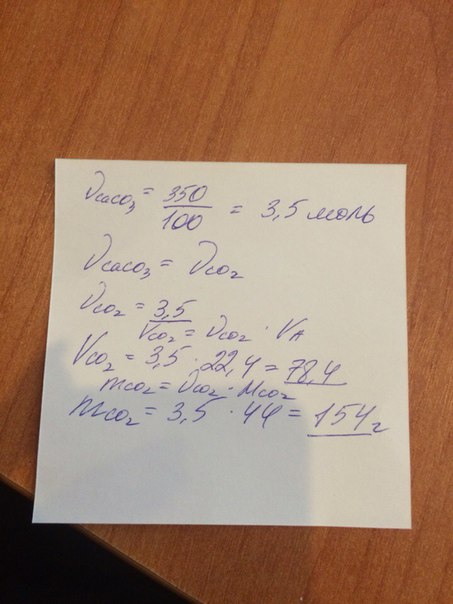 νCaCO₃ = 350/100 = 3,5 моль
νCaCO₃ = νCO₂
νCO₂ = 3,5
VCO₂ = νCO₂ · VA
VCO₂ = 3,5 · 22,4 = 78,4
mCO₂ = νCO₂ · MCO₂
mCO₂ = 3,5 · 44 = 154 г